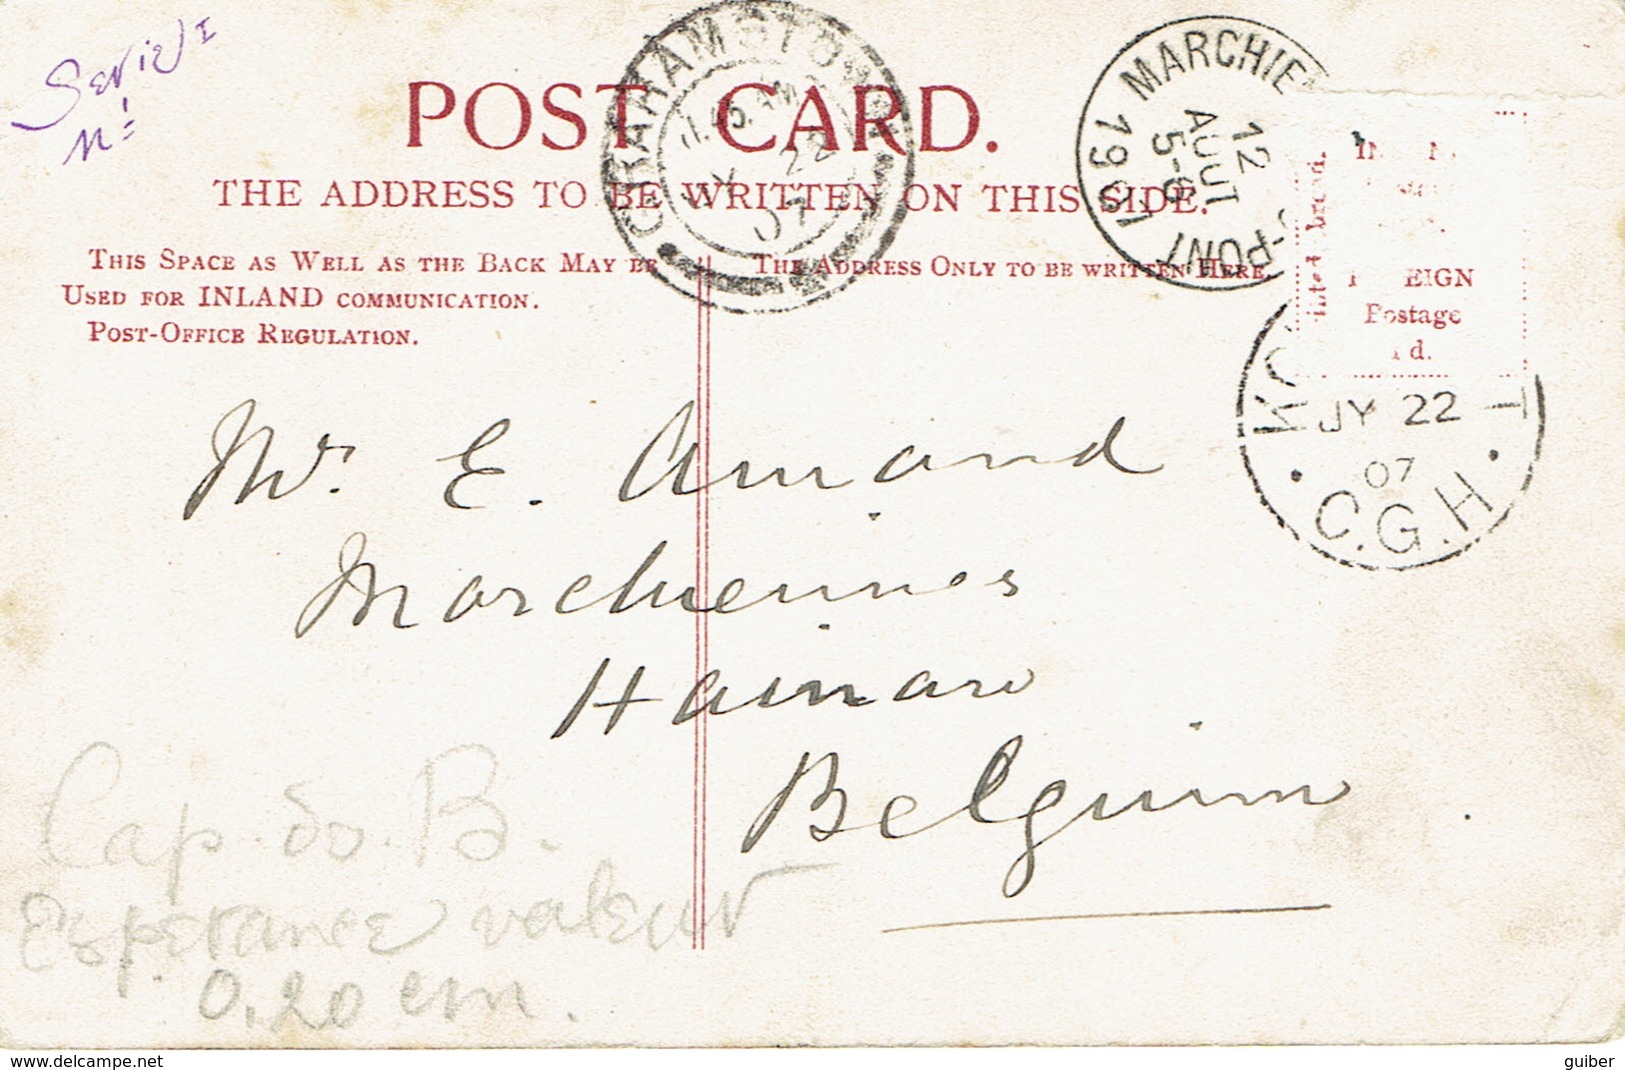 Serie I
N=
POST CARD.
THE ADDRESS TO BE WRITTEN ON THIS SIDE.
THIS SPACE AS WELL AS THE BACK MAY BE
USED FOR INLAND COMMUNICATION.
POST-OFFICE REGULATION.
THE ADDRESS ONLY TO BE WRITTEN HERE.
GRAHAMSTOWN
11.45 AM
JY 22
07
MARCHIE
PONT
12
AOUT
5-6
1907
EIGN
Postage
d.
JY 22
07
C.G.H.
Mr. E. Amand
Marchiennes
Hainau
Belguim
Cap. do. B.
Esperance valeur
0,20 cm.
www.delcampe.net
guiber